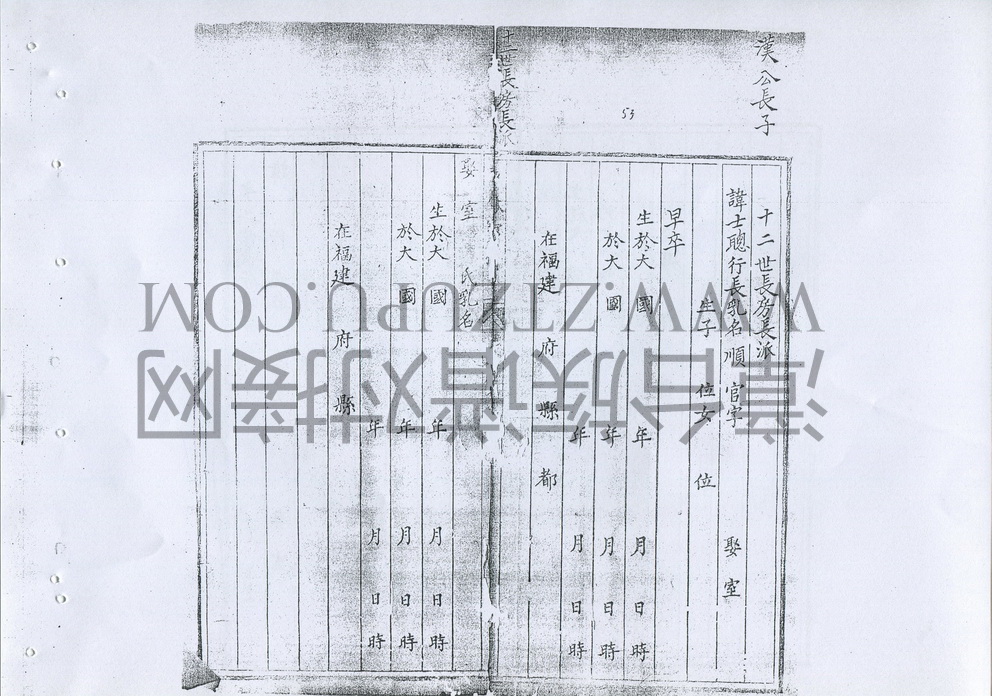 漢公長子
53
十二世長房長派
諱士聰行長乳名順 官字 娶室
生子 位女 位
早卒
生於大 國 年 月 日 時
於大 國 年 月 日 時
年 月 日 時
在福建 府 縣 都
十二世長房長派
娶 室 氏乳名
生於大 國 年 月 日 時
於大 國 年 月 日 時
年 月 日 時
在福建 府 縣
WWW.ZTZUPU.COM
漳台族谱对接网